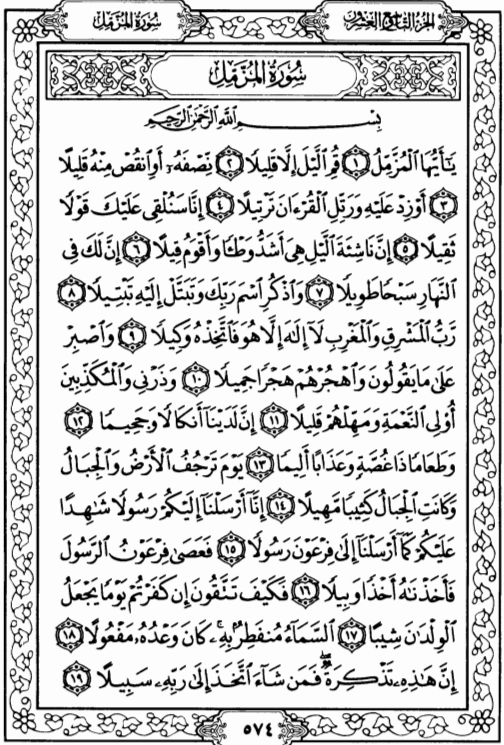 الجزء التاسع والعشرون
سورة المزمل
سُورَةُ المُزَّمِّل
بِسْمِ اللَّهِ الرَّحْمَٰنِ الرَّحِيمِ
يَٰٓأَيُّهَا ٱلْمُزَّمِّلُ ١ قُمِ ٱلَّيْلَ إِلَّا قَلِيلًا ٢ نِّصْفَهُۥٓ أَوِ ٱنقُصْ مِنْهُ قَلِيلًا
٣ أَوْ زِدْ عَلَيْهِ وَرَتِّلِ ٱلْقُرْءَانَ تَرْتِيلًا ٤ إِنَّا سَنُلْقِى عَلَيْكَ قَوْلًا
ثَقِيلًا ٥ إِنَّ نَاشِئَةَ ٱلَّيْلِ هِىَ أَشَدُّ وَطْـًٔا وَأَقْوَمُ قِيلًا ٦ إِنَّ لَكَ فِى
ٱلنَّهَارِ سَبْحًا طَوِيلًا ٧ وَٱذْكُرِ ٱسْمَ رَبِّكَ وَتَبَتَّلْ إِلَيْهِ تَبْتِيلًا ٨
رَّبُّ ٱلْمَشْرِقِ وَٱلْمَغْرِبِ لَآ إِلَٰهَ إِلَّا هُوَ فَٱتَّخِذْهُ وَكِيلًا ٩ وَٱصْبِرْ
عَلَىٰ مَا يَقُولُونَ وَٱهْجُرْهُمْ هَجْرًا جَمِيلًا ١٠ وَذَرْنِى وَٱلْمُكَذِّبِينَ
أُو۟لِى ٱلنَّعْمَةِ وَمَهِّلْهُمْ قَلِيلًا ١١ إِنَّ لَدَيْنَآ أَنكَالًا وَجَحِيمًا ١٢
وَطَعَامًا ذَا غُصَّةٍ وَعَذَابًا أَلِيمًا ١٣ يَوْمَ تَرْجُفُ ٱلْأَرْضُ وَٱلْجِبَالُ
وَكَانَتِ ٱلْجِبَالُ كَثِيبًا مَّهِيلًا ١٤ إِنَّآ أَرْسَلْنَآ إِلَيْكُمْ رَسُولًا شَٰهِدًا
عَلَيْكُمْ كَمَآ أَرْسَلْنَآ إِلَىٰ فِرْعَوْنَ رَسُولًا ١٥ فَعَصَىٰ فِرْعَوْنُ ٱلرَّسُولَ
فَأَخَذْنَٰهُ أَخْذًا وَبِيلًا ١٦ فَكَيْفَ تَتَّقُونَ إِن كَفَرْتُمْ يَوْمًا يَجْعَلُ
ٱلْوِلْدَٰنَ شِيبًا ١٧ ٱلسَّمَآءُ مُنفَطِرٌۢ بِهِۦ كَانَ وَعْدُهُۥ مَفْعُولًا ١٨
إِنَّ هَٰذِهِۦ تَذْكِرَةٌ فَمَن شَآءَ ٱتَّخَذَ إِلَىٰ رَبِّهِۦ سَبِيلًا ١٩
٥٧٤